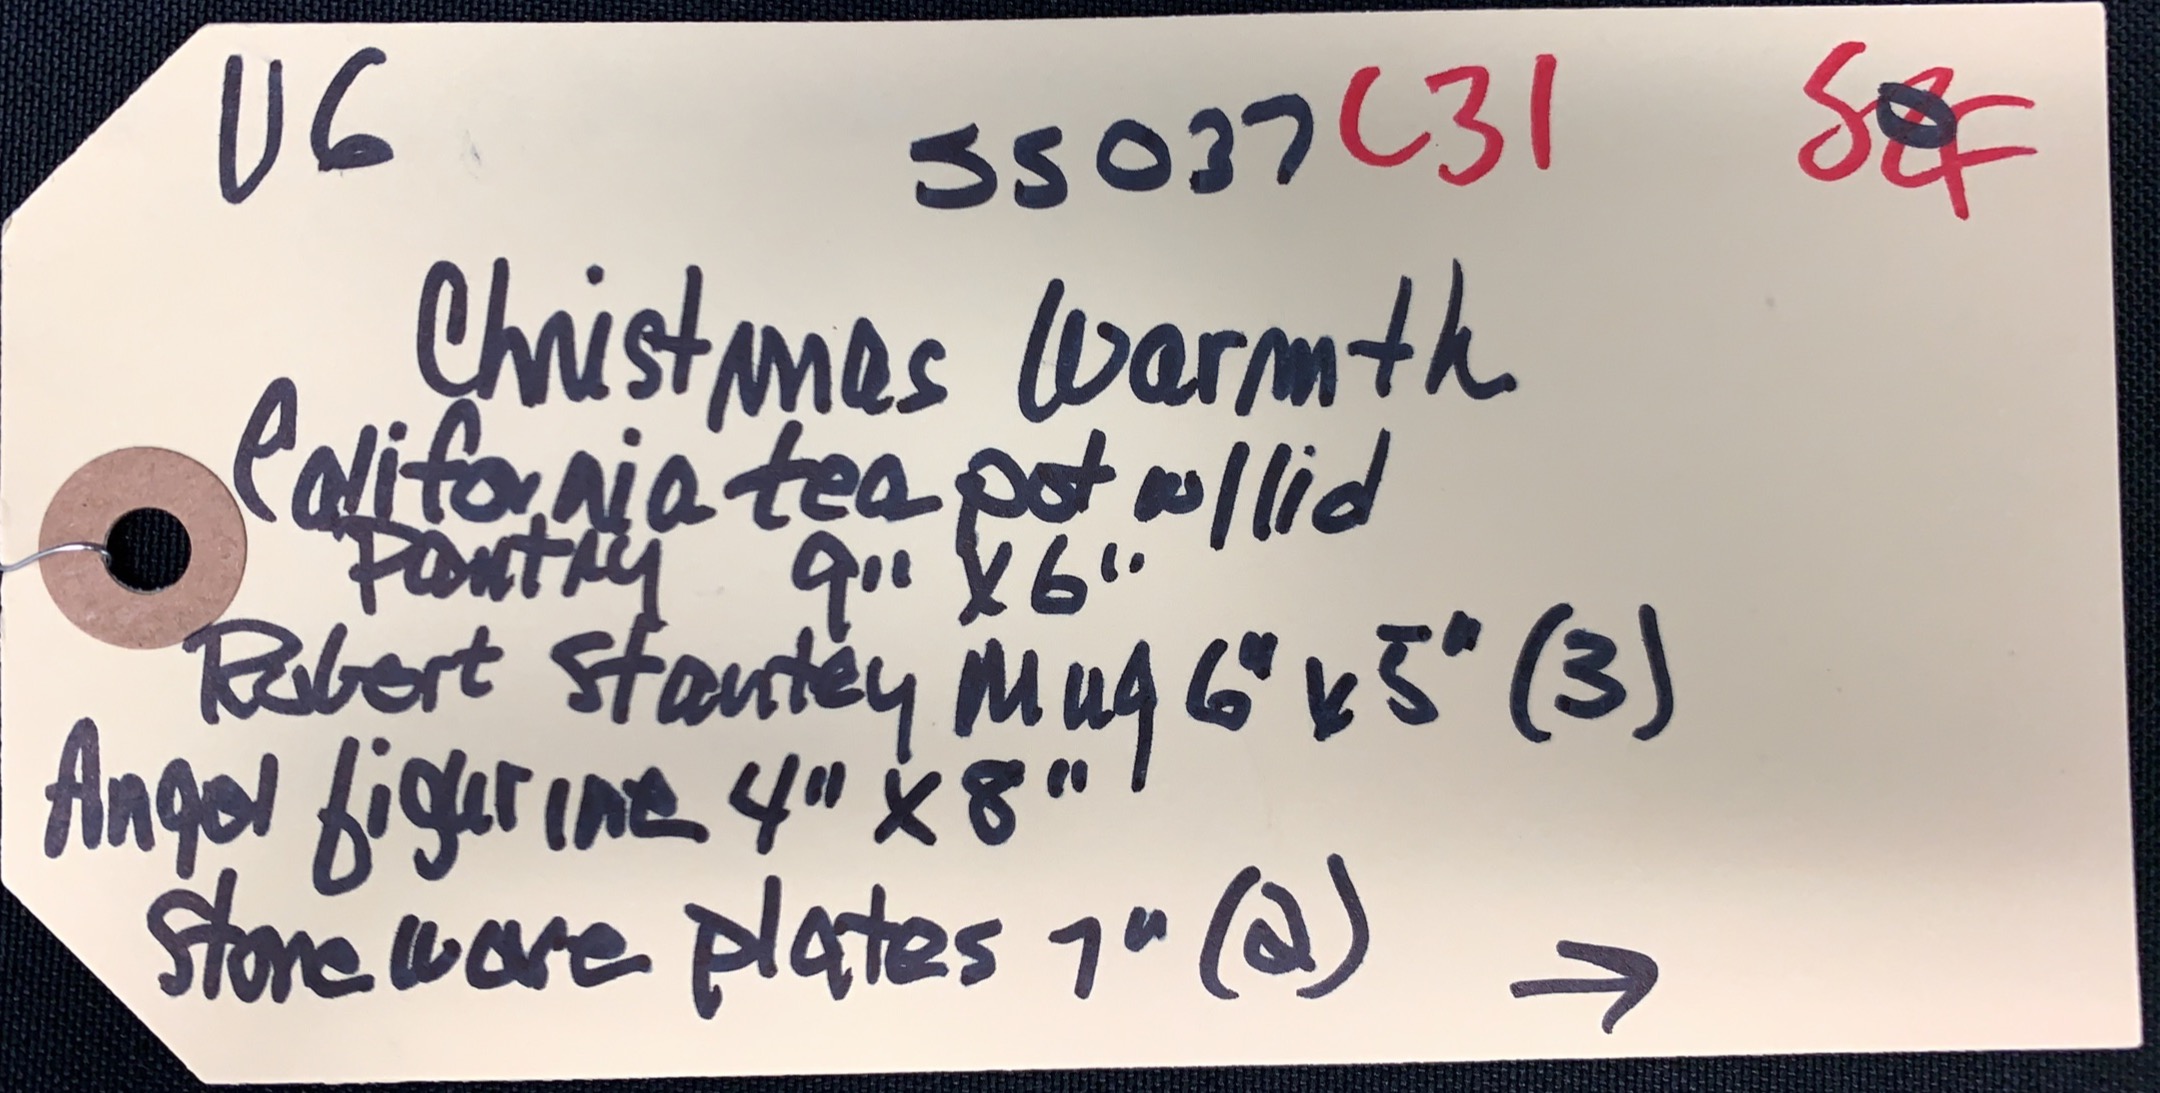 U6 SS037 C31
Christmas Warmth
California tea pot w/lid
Pantry 9" x 6"
Robert Stanley Mug 6" x 5" (3)
Angel figurine 4" x 8"
Stoneware plates 7" (2) →